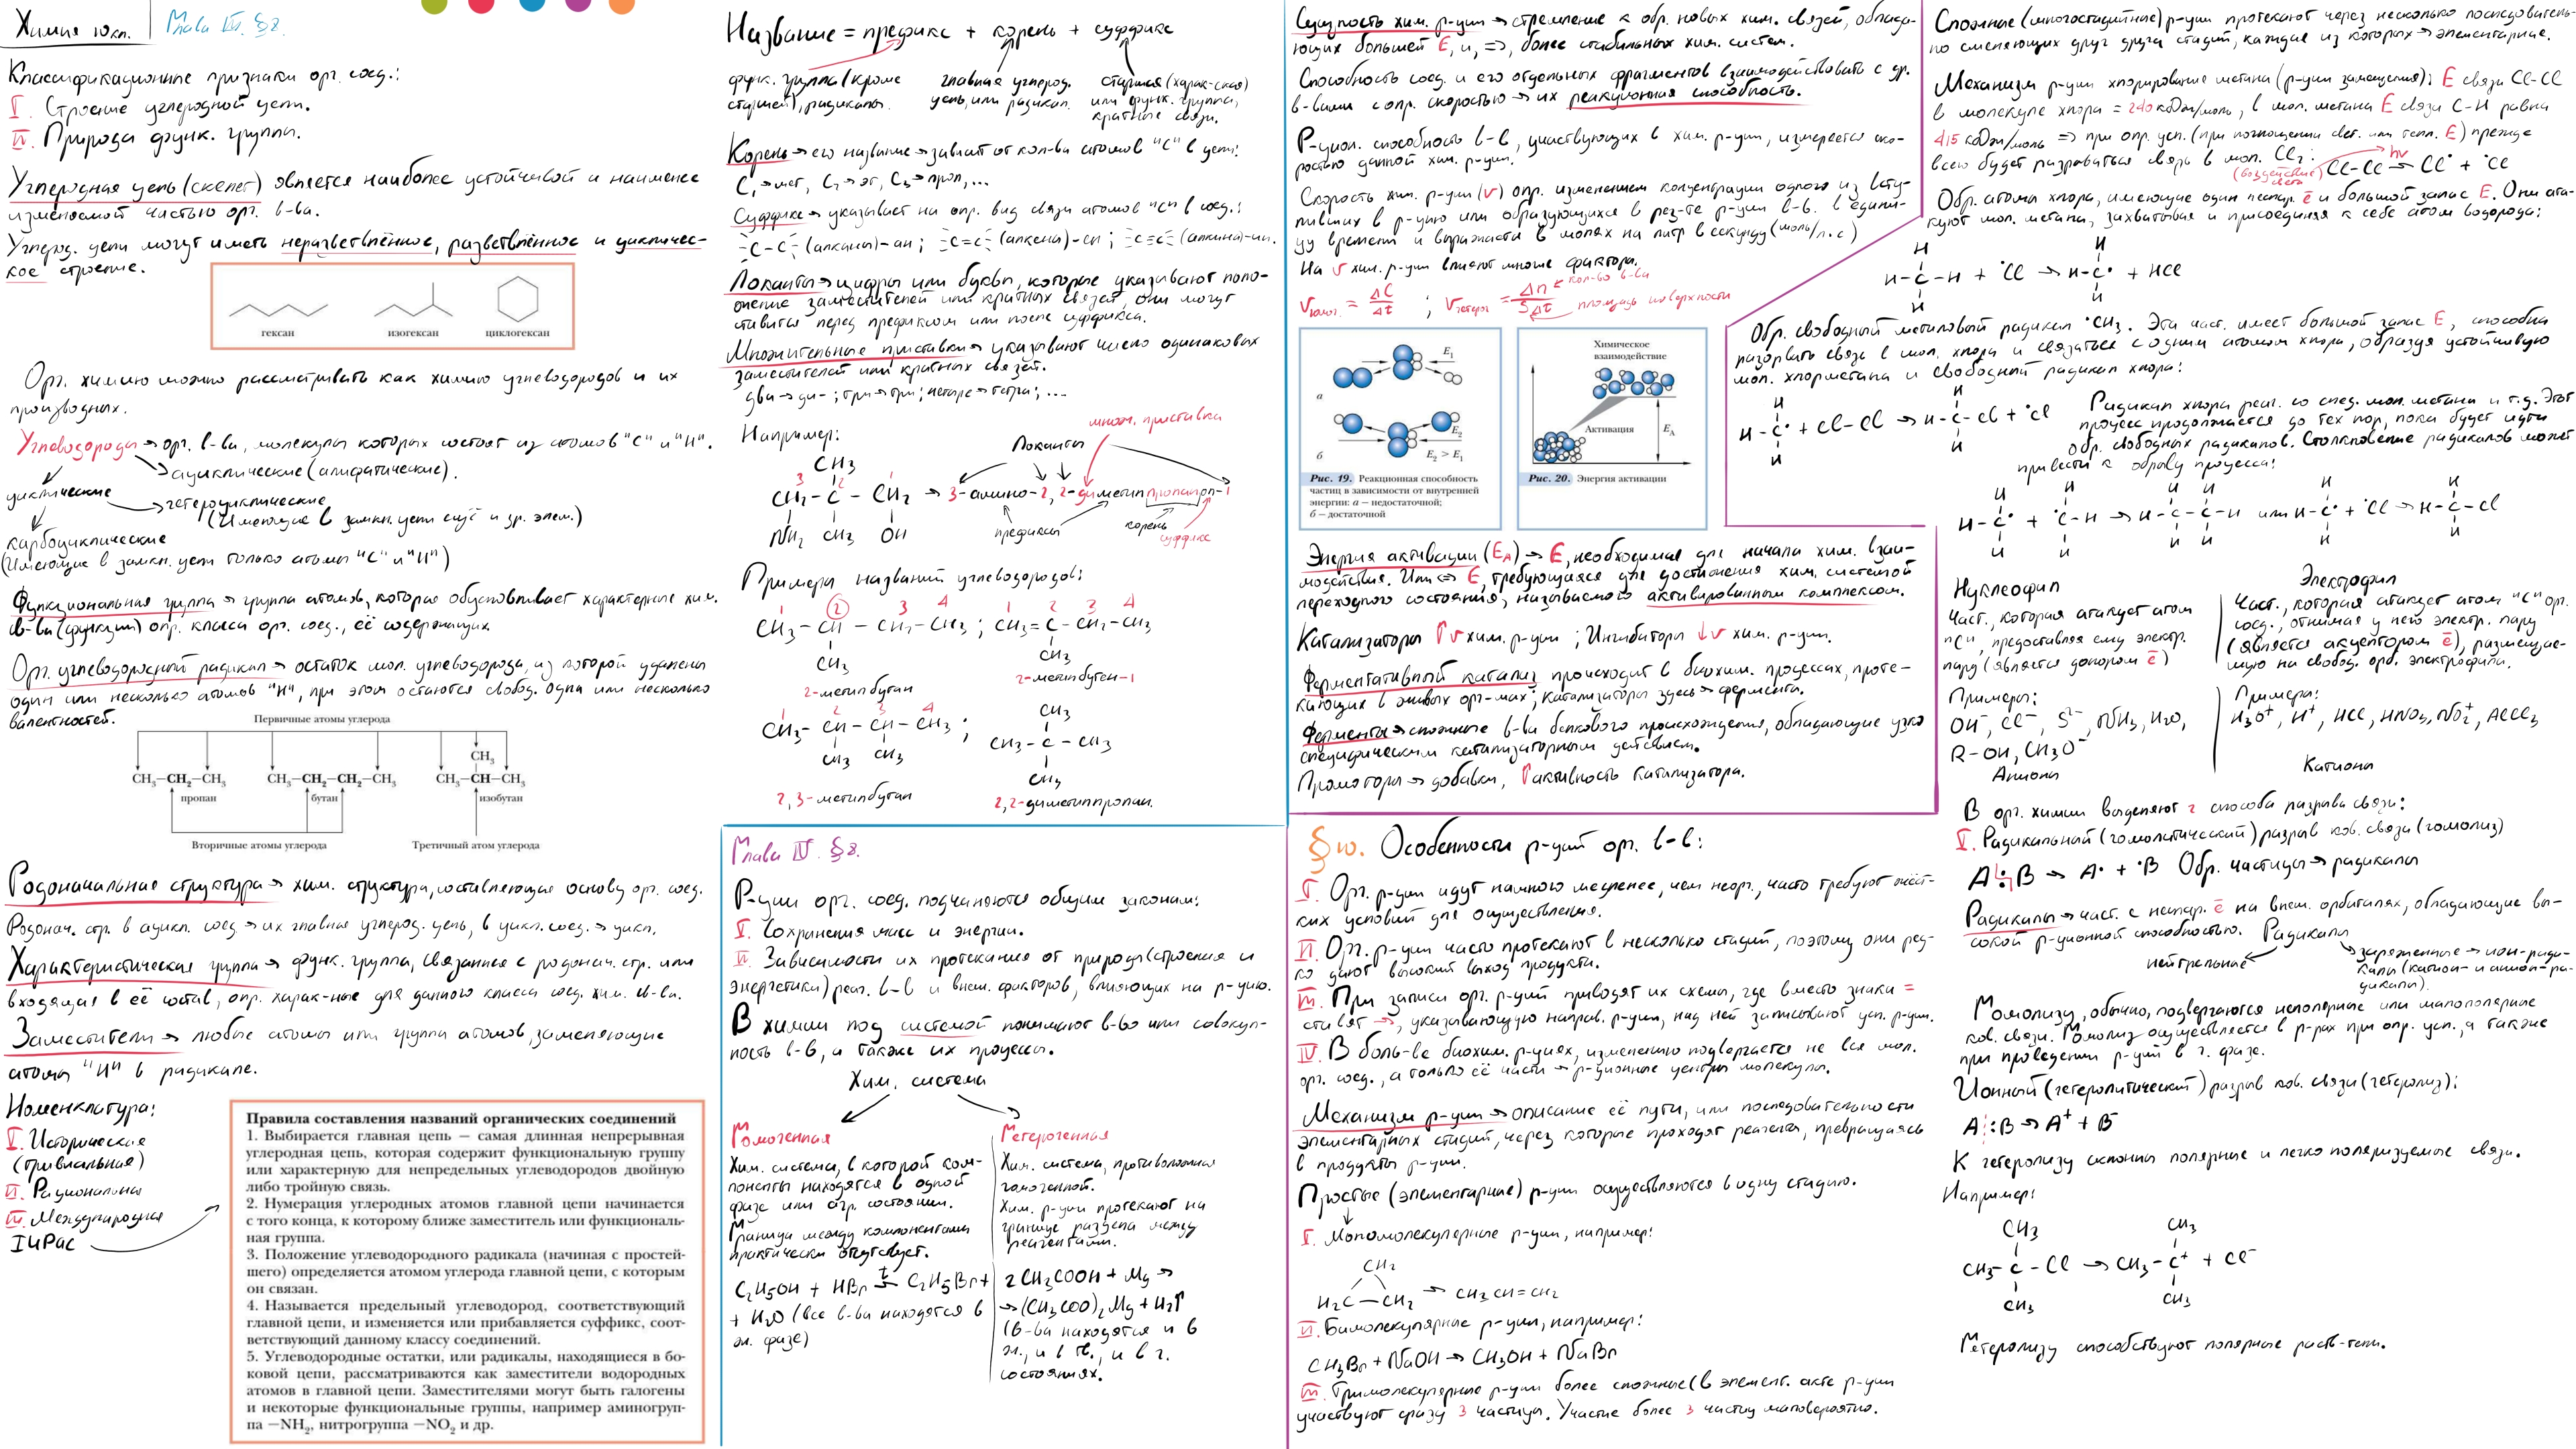 Химия 10 кл. Глава III. §8.
Классификационные признаки орг. соед.:
I. Строение углеродной цепи.
II. Природа функ. группы.
Углеродная цепь (скелет) является наиболее устойчивой и наименее
изменяемой частью орг. в-ва.
Углерод. цепи могут иметь неразветвлённое, разветвлённое и цикличес-
кое строение.
гексан изогексан циклогексан
Орг. химию можно рассматривать как химию углеводородов и их
производных.
Углеводороды → орг. в-ва, молекулы которых состоят из атомов "C" и "H".
ациклические (алифатические).
циклические
гетероциклические
(Имеющие в замкн. цепи ещё и др. элем.)
карбоциклические
(Имеющие в замкн. цепи только атомы "C" и "H")
Функциональная группа → группа атомов, которая обуславливает характерные хим.
св-ва (функции) опр. класса орг. соед., её содержащих.
Орг. углеводородный радикал → остаток мол. углеводорода, из которой удалены
один или несколько атомов "H", при этом остаются свобод. одна или несколько
валентностей.
Первичные атомы углерода
CH₃
CH₃—CH₂—CH₃ CH₃—CH₂—CH₂—CH₃ CH₃—CH—CH₃
пропан бутан изобутан
Вторичные атомы углерода Третичный атом углерода
Родоначальная структура → хим. структура, составляющая основу орг. соед.
Родонач. стр. в ацикл. соед → их главная углерод. цепь, в цикл. соед. → цикл.
Характеристическая группа → функ. группа, связанная с родонач. стр. или
входящая в её состав, опр. харак-ные для данного класса соед. хим. св-ва.
Заместители → любые атомы или группа атомов, заменяющие
атомы "H" в радикале.
Номенклатура:
I. Историческая
(тривиальная)
II. Рациональная
III. Международная
IUPAC
Правила составления названий органических соединений
1. Выбирается главная цепь — самая длинная непрерывная
углеродная цепь, которая содержит функциональную группу
или характерную для непредельных углеводородов двойную
либо тройную связь.
2. Нумерация углеродных атомов главной цепи начинается
с того конца, к которому ближе заместитель или функциональ-
ная группа.
3. Положение углеводородного радикала (начиная с простей-
шего) определяется атомом углерода главной цепи, с которым
он связан.
4. Называется предельный углеводород, соответствующий
главной цепи, и изменяется или прибавляется суффикс, соот-
ветствующий данному классу соединений.
5. Углеводородные остатки, или радикалы, находящиеся в бо-
ковой цепи, рассматриваются как заместители водородных
атомов в главной цепи. Заместителями могут быть галогены
и некоторые функциональные группы, например аминогруп-
па —NH₂, нитрогруппа —NO₂ и др.
Название = префикс + корень + суффикс
функ. группа (кроме главная углерод. старшая (харак-ская)
старшей), радикалы. цепь, или радикал. или функ. группа,
кратные связи.
Корень → его название → зависит от кол-ва атомов "C" в цепи:
C₁ → мет, C₂ → эт, C₃ → проп, ...
Суффикс → указывает на опр. вид связи атомов "C" в соед.:
-C-C- (алканы)-ан; -C=C- (алкены)-ен; -C≡C- (алкины)-ин.
Локанты → цифры или буквы, которые указывают поло-
жение заместителей или кратных связей, они могут
ставится перед префиксом или после суффикса.
Множительные приставки → указывают число одинаковых
заместителей или кратных связей.
два → ди-; три → три; четыре → тетра; ...
Например:
множ. приставка
Локанты
CH₃
3 2 1
CH₂ - C - CH₂ → 3-амино-2,2-диметилпропанол-1
NH₂ CH₃ OH
префиксы корень суффикс
Примеры названий углеводородов:
1 2 3 4 1 2 3 4
CH₃ - CH - CH₂ - CH₃; CH₂ = C - CH₂ - CH₃
CH₃ CH₃
2-метилбутан 2-метилбутен-1
1 2 3 4 CH₃
CH₃ - CH - CH - CH₃; CH₃ - C - CH₃
CH₃ CH₃ CH₃
2,3-метилбутан 2,2-диметилпропан.
Глава IV. §8.
Р-ции орг. соед. подчиняются общим законам:
I. Сохранения масс и энергии.
II. Зависимости их протекания от природы (строения и
энергетики) реаг. в-в и внеш. факторов, влияющих на р-цию.
В химии под системой понимают в-во или совокуп-
ность в-в, а также их процессы.
Хим. система
Гомогенная
Хим. система, в которой ком-
поненты находятся в одной
фазе или агр. состоянии.
Граница между компонентами
практически отсутствует.
C₂H₅OH + HBr ⇄ C₂H₅Br +
+ H₂O (все в-ва находятся в
ж. фазе)
Гетерогенная
Хим. система, противоположная
гомогенной.
Хим. р-ции протекают на
границе раздела между
реагентами.
2CH₃COOH + Mg →
→ (CH₃COO)₂Mg + H₂↑
(в-ва находятся и в
ж., и в тв., и в г.
состояниях.
Сущность хим. р-ции → стремление к обр. новых хим. связей, облада-
ющих большей E, и, =>, более стабильных хим. систем.
Способность соед. и его отдельных фрагментов взаимодействовать с др.
в-вами с опр. скоростью → их реакционная способность.
Р-цион. способность в-в, участвующих в хим. р-ции, измеряется ско-
ростью данной хим. р-ции.
Скорость хим. р-ции (v) опр. изменением концентрации одного из всту-
пивших в р-цию или образующихся в рез-те р-ции в-в. в едини-
цу времени и выражается в молях на литр в секунду (моль/л.с)
На v хим. р-ции влияют многие фактора.
vгомог. = ΔC/Δt ; vгетерог. = Δn/SΔt кол-во в-ва площадь поверхности
E₁
а
E₂
б E₂ > E₁
Рис. 19. Реакционная способность
частиц в зависимости от внутренней
энергии: а — недостаточной;
б — достаточной
Химическое
взаимодействие
Активация E_A
Рис. 20. Энергия активации
Энергия активации (E_A) → E, необходимая для начала хим. взаи-
модействия. Или => E, требующаяся для достижения хим. системой
переходного состояния, называемого активированным комплексом.
Катализаторы ↑v хим. р-ции; Ингибиторы ↓v хим. р-ции.
Ферментативный катализ происходит в биохим. процессах, проте-
кающих в живых орг-мах; катализаторы здесь → ферменты.
Ферменты → сложные в-ва белкового происхождения, обладающие узко
специфическим катализаторным действием.
Промоторы → добавки, ↑активность катализатора.
§10. Особенности р-ций орг. в-в:
I. Орг. р-ции идут намного медленее, чем неорг., часто требуют жёст-
ких условий для осуществления.
II. Орг. р-ции часто протекают в несколько стадий, поэтому они ред-
ко дают высокий выход продукта.
III. При записи орг. р-ций приводят их схемы, где вместо знака =
ставят →, указывающую направ. р-ции, над ней записывают усл. р-ции.
IV. В боль-ве биохим. р-циях, изменению подвергается не вся мол.
орг. соед., а только её части → р-ционные центры молекулы.
Механизм р-ции → описание её пути, или последовательности
элементарных стадий, через которые проходят реагенты, превращаясь
в продукты р-ции.
Простые (элементарные) р-ции осуществляются в одну стадию.
I. Мономолекулярные р-ции, например:
CH₂
H₂C — CH₂ → CH₃CH=CH₂
II. Бимолекулярные р-ции, например:
CH₃Br + NaOH → CH₃OH + NaBr
III. Тримолекулярные р-ции более сложные (в элемент. акте р-ции
участвуют сразу 3 частицы. Участие более 3 частиц маловероятно.
Сложные (многостадийные) р-ции протекают через несколько последователь-
но сменяющих друг друга стадий, каждая из которых → элементарные.
Механизм р-ции хлорирования метана (р-ции замещения): E связи Cl-Cl
в молекуле хлора = 240 кДж/моль, в мол. метана E связи C-H равна
415 кДж/моль => при опр. усл. (при поглощении свет. или тепл. E) прежде
всего будет разрываться связь в мол. Cl₂:
(воздействие света) Cl-Cl →hν Cl• + •Cl
Обр. атомы хлора, имеющие один неспар. ē и большой запас E. Они ата-
куют мол. метана, захватывая и присоединяя к себе атом водорода:
H H
H-C-H + •Cl → H-C• + HCl
H H
Обр. свободный метиловый радикал •CH₃. Эта част. имеет большой запас E, способна
разорвать связь в мол. хлора и связаться с одним атомом хлора, образуя устойчивую
мол. хлорметана и свободный радикал хлора:
H H
H-C• + Cl-Cl → H-C-Cl + •Cl
H H
Радикал хлора реаг. со след. мол. метана и т.д. Этот
процесс продолжается до тех пор, пока будет идти
обр. свободных радикалов. Столкновение радикалов может
привести к обрыву процесса:
H H H H H H
H-C• + •C-H → H-C-C-H или H-C• + •Cl → H-C-Cl
H H H H H H
Нуклеофил
Част., которая атакует атом
"C", предоставляя ему электр.
пару (является донором ē)
Примеры:
OH⁻, Cl⁻, S²⁻, NH₃, H₂O,
R-OH, CH₃O⁻
Анионы
Электрофил
Част., которая атакует атом "C" орг.
соед., отнимая у него электр. пару
(является акцептором ē), размещае-
мую на свобод. орб. электрофила.
Примеры:
H₃O⁺, H⁺, HCl, HNO₃, NO₂⁺, AlCl₃
Катионы
В орг. химии выделяют 2 способа разрыва связи:
I. Радикальный (гомолитический) разрыв ков. связи (гомолиз)
A:B → A• + •B Обр. частицы → радикалы
Радикалы → част. с неспар. ē на внеш. орбиталях, обладающие вы-
сокой р-ционной способностью. Радикалы
нейтральные
заряженные → ион-ради-
калы (катион- и анион-ра-
дикалы).
Гомолизу, обычно, подвергаются неполярные или малополярные
ков. связи. Гомолиз осуществляется в р-рах при опр. усл., а также
при проведении р-ции в г. фазе.
Ионный (гетеролитический) разрыв ков. связи (гетеролиз):
A:B → A⁺ + B⁻
К гетеролизу склонны полярные и легко поляризуемые связи.
Например:
CH₃ CH₃
CH₃ - C - Cl → CH₃ - C⁺ + Cl⁻
CH₃ CH₃
Гетеролизу способствуют полярные раств-тели.